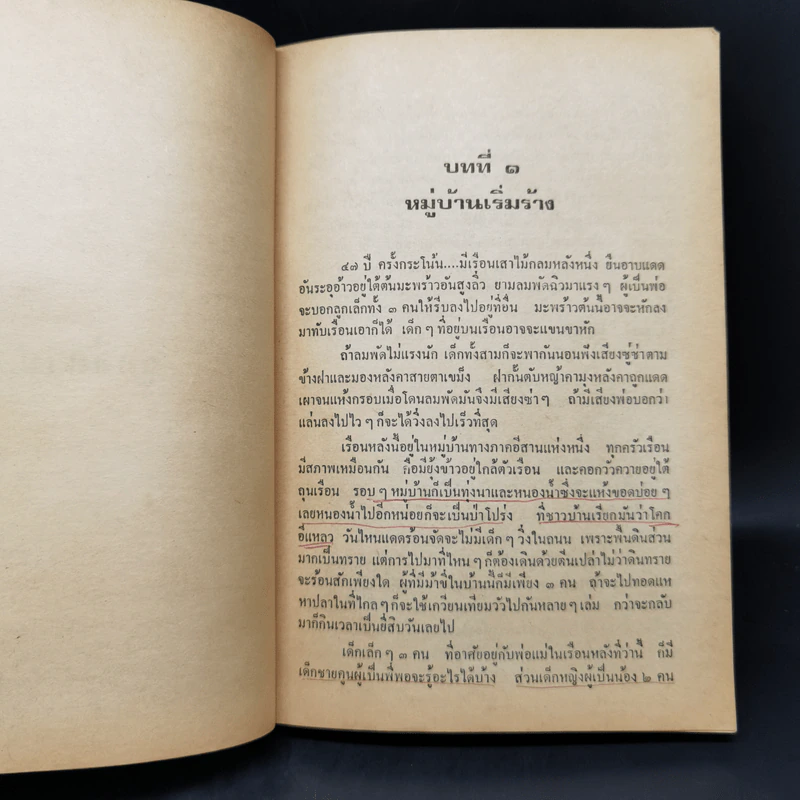 บทที่ ๑
หมู่บ้านเริ่มร้าง
๔๗ ปี ครั้งกระโน้น....มีเรือนเสาไม้กลมหลังหนึ่ง ยืนอาบแดด
อันระอุอ้าวอยู่ใต้ต้นมะพร้าวอันสูงลิ่ว ยามลมพัดฉิวมาแรง ๆ ผู้เป็นพ่อ
จะบอกลูกเล็กทั้ง ๓ คนให้รีบลงไปอยู่ที่อื่น มะพร้าวต้นนี้อาจจะหักลง
มาทับเรือนเอาก็ได้ เด็ก ๆ ที่อยู่บนเรือนอาจจะแขนขาหัก
ถ้าลมพัดไม่แรงนัก เด็กทั้งสามก็จะพากันนอนฟังเสียงซู่ซ่าตาม
ข้างฝาและมองหลังคาสายตาเขม็ง ฝากั้นตับหญ้าคามุงหลังคาถูกแดด
เผาจนแห้งกรอบเมื่อโดนลมพัดมันจึงมีเสียงซ่า ๆ ถ้ามีเสียงพ่อบอกว่า
แล่นลงไปไว ๆ ก็จะได้วิ่งลงไปเร็วที่สุด
เรือนหลังนี้อยู่ในหมู่บ้านทางภาคอีสานแห่งหนึ่ง ทุกครัวเรือน
มีสภาพเหมือนกัน คือมียุ้งข้าวอยู่ใกล้ตัวเรือน และคอกวัวควายอยู่ใต้
ถุนเรือน รอบ ๆ หมู่บ้านก็เป็นทุ่งนาและหนองน้ำซึ่งจะแห้งขอดบ่อย ๆ
เลยหนองน้ำไปอีกหน่อยก็จะเป็นป่าโปร่ง ที่ชาวบ้านเรียกมันว่าโคก
อีแหลว วันไหนแดดร้อนจัดจะไม่มีเด็ก ๆ วิ่งในถนน เพราะพื้นดินส่วน
มากเป็นทราย แต่การไปมาที่ไหน ๆ ก็ต้องเดินด้วยตีนเปล่าไม่ว่าดินทราย
จะร้อนสักเพียงใด ผู้ที่มีม้าขี่ในบ้านนี้ก็มีเพียง ๓ คน ถ้าจะไปทอดแห
หาปลาในที่ไกล ๆ ก็จะใช้เกวียนเทียมวัวไปกันหลาย ๆ เล่ม กว่าจะกลับ
มาก็กินเวลาเป็นยี่สิบวันเลยไป
เด็กเล็ก ๆ ๓ คน ที่อาศัยอยู่กับพ่อแม่ในเรือนหลังที่ว่านี้ ก็มี
เด็กชายคูนผู้เป็นพี่พอจะรู้อะไรได้บ้าง ส่วนเด็กหญิงผู้เป็นน้อง ๒ คน